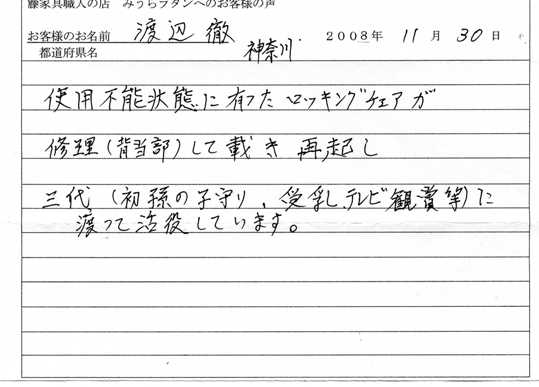 籐家具職人の店 みうらラタンへのお客様の声
お客様のお名前 渡辺 徹 2008年 11月 30日
都道府県名 神奈川
使用不能状態に有ったロッキングチェアが
修理(背当部)して載き再起し
三代(初孫の子守り、受乳、テビ観賞等)に
渡って活役しています。